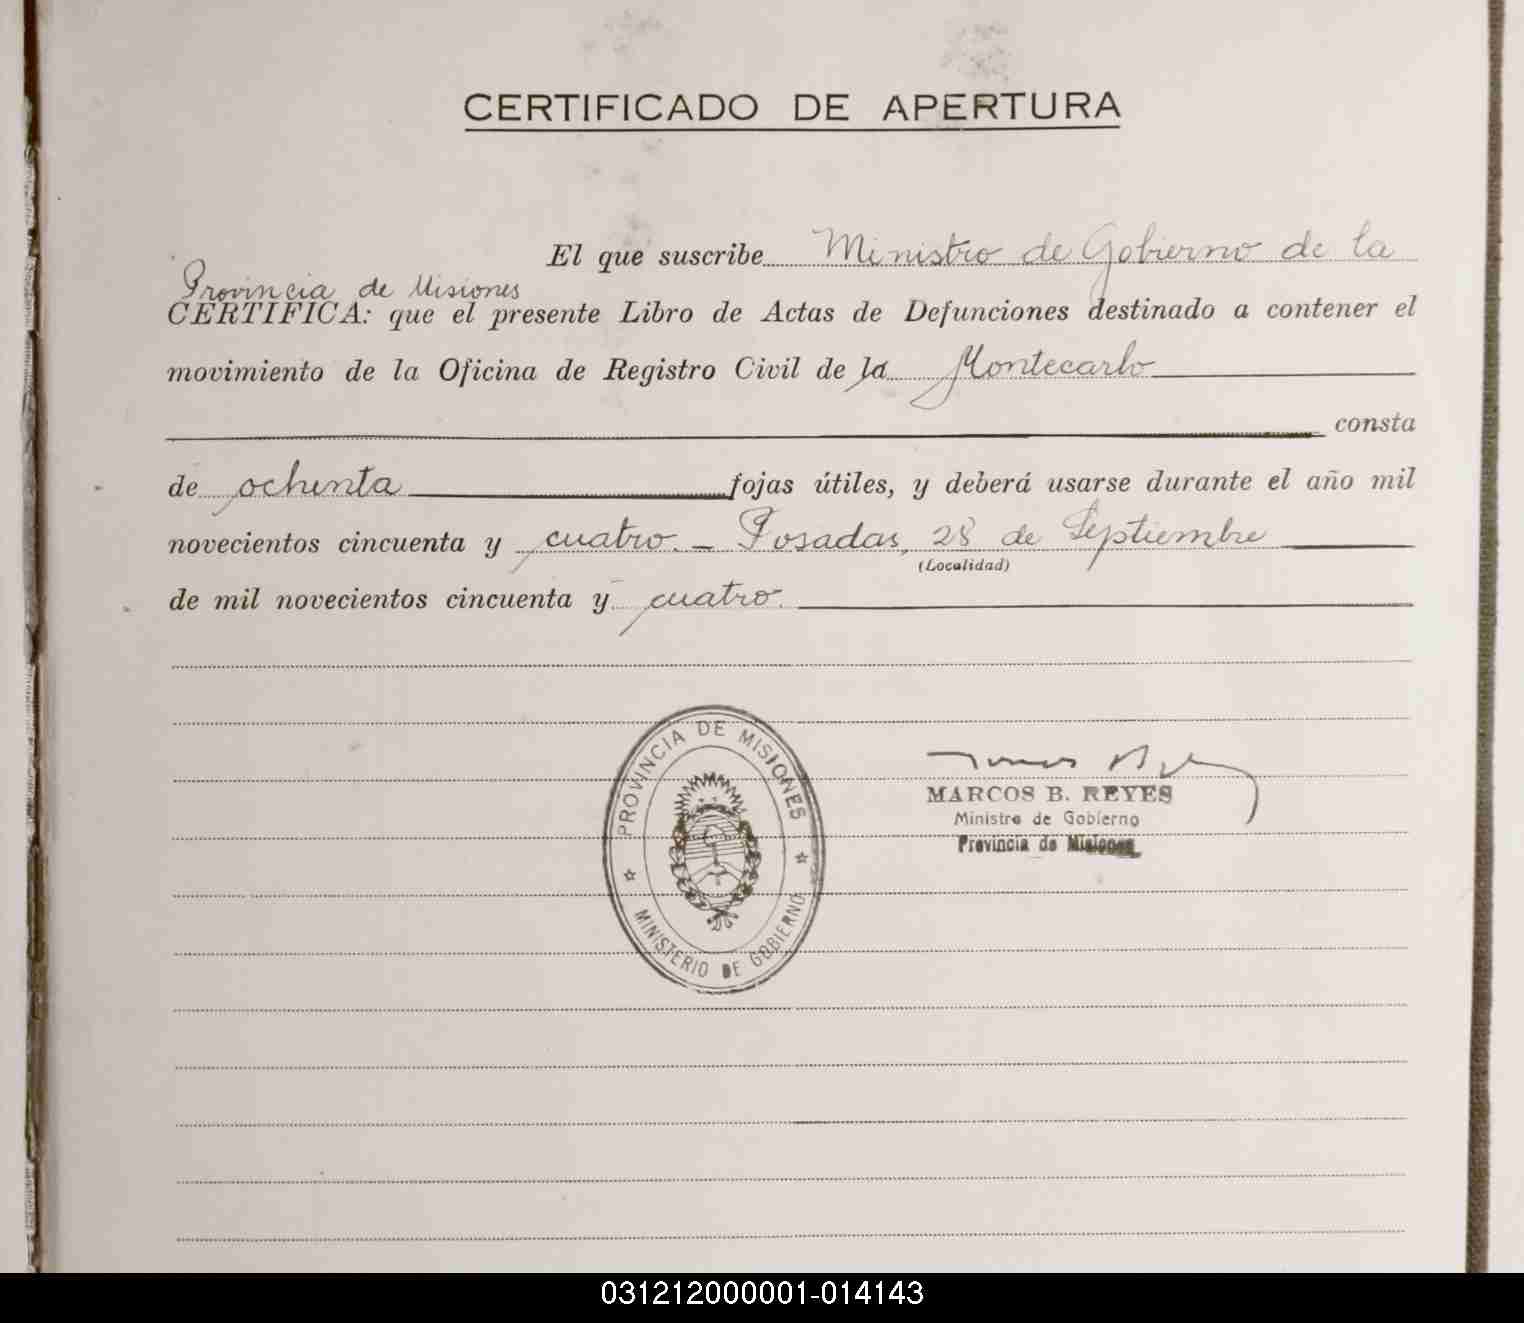 CERTIFICADO DE APERTURA
El que suscribe Ministro de Gobierno de la
Provincia de Misiones
CERTIFICA: que el presente Libro de Actas de Defunciones destinado a contener el
movimiento de la Oficina de Registro Civil de la Montecarlo
consta
de ochenta fojas útiles, y deberá usarse durante el año mil
novecientos cincuenta y cuatro. - Posadas, 28 de Septiembre
(Localidad)
de mil novecientos cincuenta y cuatro.
PROVINCIA DE MISIONES
MINISTERIO DE GOBIERNO
MARCOS B. REYES
Ministro de Gobierno
Provincia de Misiones
031212000001-014143